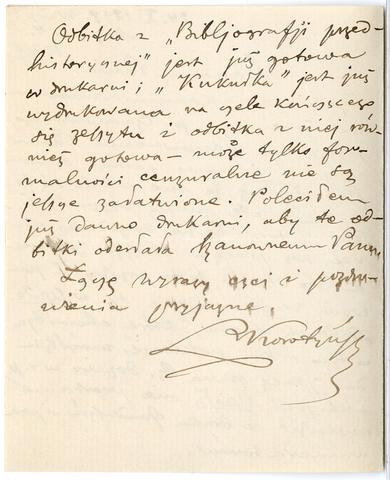 Odbitka z „Bibljografji przed-
historycznej" jest już gotowa
w drukarni; „Kukułka" jest już
wydrukowana na czele kończącego
się zeszytu i odbitka z niej rów-
nież gotowa – może tylko for-
malności cenzuralne nie są
jeszcze załatwione. Poleciłem
już dawno drukarni, aby te od-
bitki odesłała Szanownemu Panu.
Łączę wyrazy czci i pozdro-
wienia przyjazne.